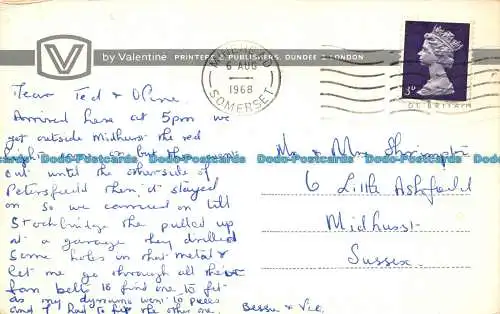 V
by Valentine PRINTERS & PUBLISHERS, DUNDEE & LONDON
MINEHEAD
6 AUG
1968
SOMERSET
3D
Dear Ted & Olive
Arrived here at 5pm we
got outside Midhurst the red
light came on but then went
out until the otherside of
Petersfield then it stayed
on so we carried on till
Stockbridge the pulled up
at a garage they drilled
some holes in that metal &
let me go through all their
fan belts to find one to fit
as my dynamo went to pieces
and I had to fix the other one.
Bessie & Vic.
Mr & Mrs Shrimpton
6 Little Ashfield
Midhurst
Sussex.
Dodo-Postcards Dodo-Postcards Dodo-Postcards Dodo-Postcards